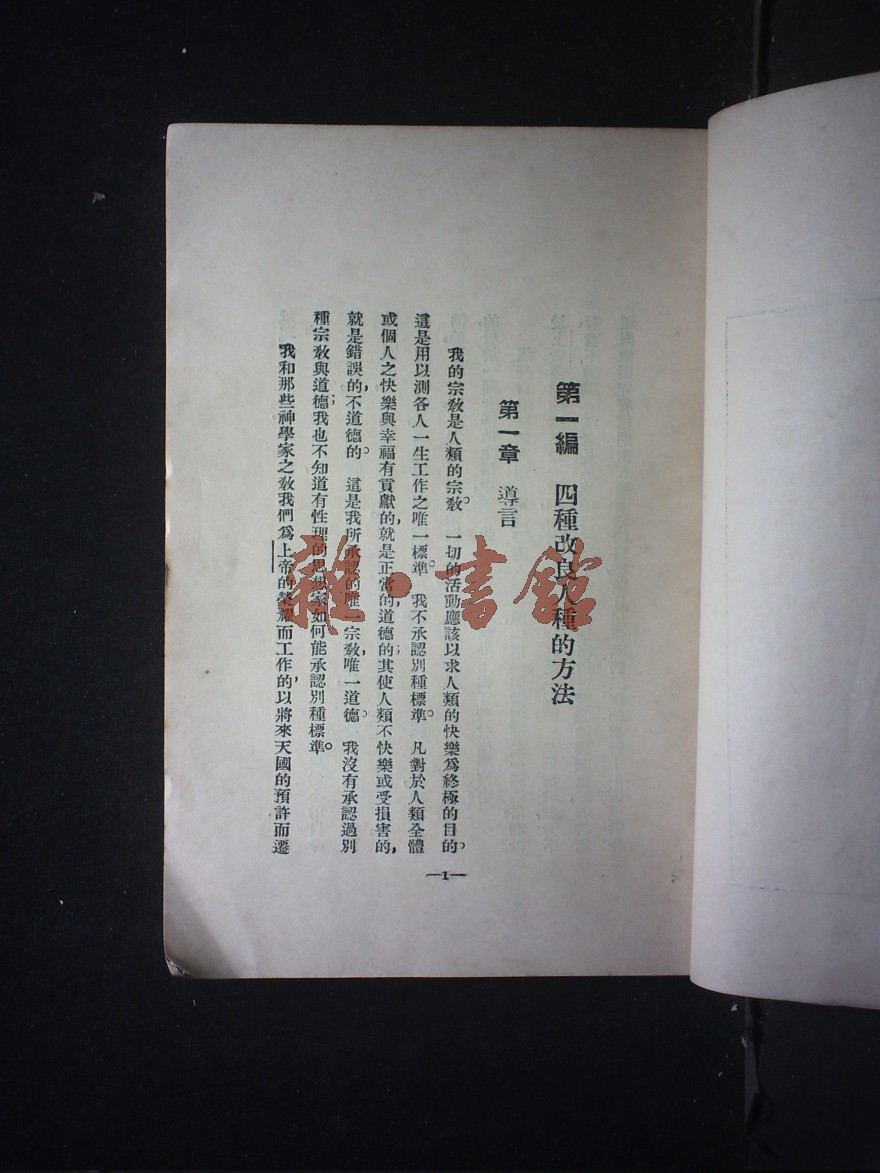 第一編　四種改良人種的方法
第一章　導言
我的宗敎是人類的宗敎。一切的活動應該以求人類的快樂爲終極的目的。
這是用以測各人一生工作之唯一標準。我不承認別種標準。凡對於人類全體
或個人之快樂與幸福有貢獻的，就是正當的，道德的；其使人類不快樂或受損害的，
就是錯誤的，不道德的。這是我所承認的唯一宗敎，唯一道德。我沒有承認過別
種宗敎與道德；我也不知道有性理的思想家如何能承認別種標準。
我和那些神學家之敎我們爲上帝的榮耀而工作的，以將來天國的預許而遷
—1—
雜·書館